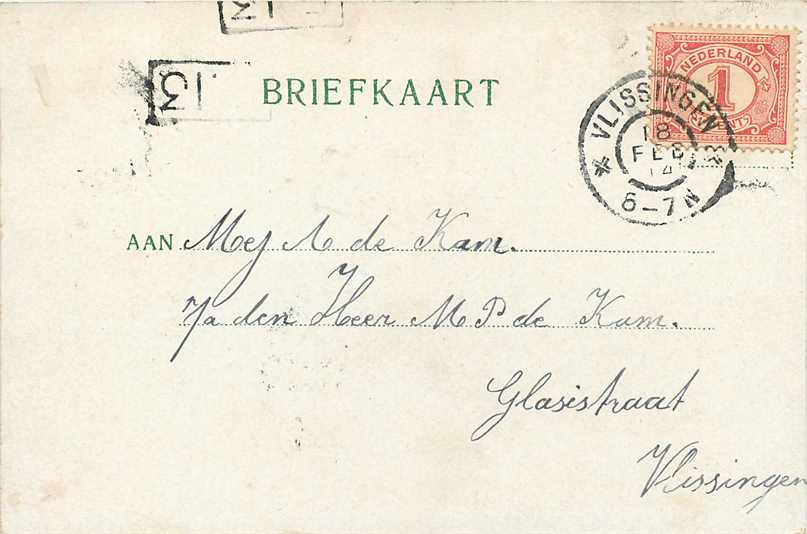 BRIEFKAART
NEDERLAND
1
VLISSINGEN
18
FEB
14
6-7N
3
AAN Mej A de Kam.
p/a den Heer M P de Kam.
Glasistraat
Vlissingen